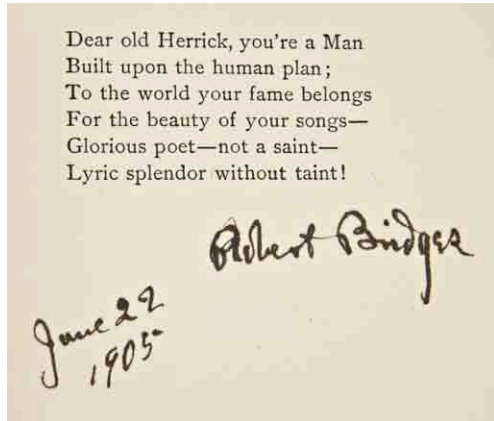 Dear old Herrick, you're a Man
Built upon the human plan;
To the world your fame belongs
For the beauty of your songs—
Glorious poet—not a saint—
Lyric splendor without taint!
Robert Bridges
June 22
1905